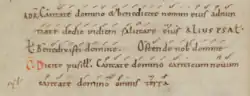 Cantate domino & benedicite nomen eius adnun
tiate dedie indiem salutare eius ALIUS PSAL
Benedixisti domine Ostende nob domine
Cantate domino canticum nouum
cantate domino omnis terra